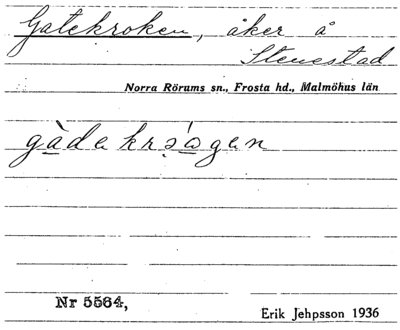 Gatekroken, åker å
Stenestad
Norra Rörums sn., Frosta hd., Malmöhus län
gàdekrságen
Nr 5564,
Erik Jehpsson 1936